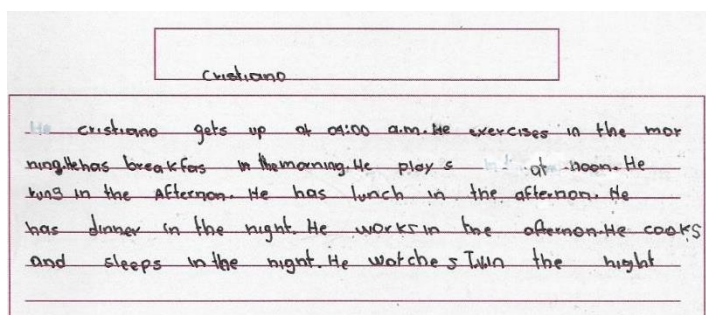 Cristiano
He Cristiano gets up at 09:00 a.m. He exercises in the mor
ning. He has breakfas in the morning. He play s in t at noon. He
runs in the Afternon. He has lunch in the afternon. He
has dinner in the night. He works in the afternon. He cooks
and sleeps in the night. He watche s Tv in the night